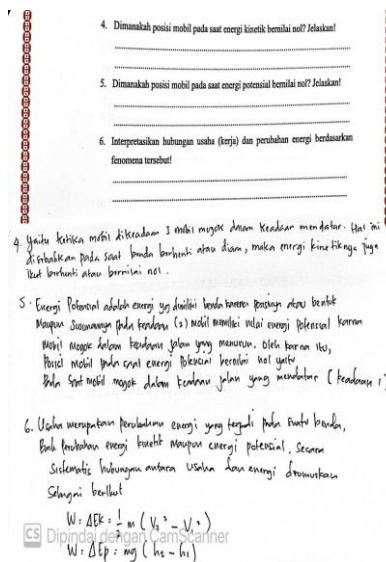 4. Dimanakah posisi mobil pada saat energi kinetik bernilai nol? Jelaskan!
5. Dimanakah posisi mobil pada saat energi potensial bernilai nol? Jelaskan!
6. Interpretasikan hubungan usaha (kerja) dan perubahan energi berdasarkan
fenomena tersebut!
4. yaitu ketika mobil dikeadaan 1 mobil mogok dalam keadaan mendatar. Hal ini
disebabkan pada saat benda berhenti atau diam, maka energi kinetiknya juga
ikut berhenti atau bernilai nol.
5. Energi Potensial adalah energi yg dimiliki benda karena posisinya atau bentuk
maupun susunannya pada keadaan (2) mobil memiliki nilai energi potensial karna
mobil mogok dalam keadaan jalan yang menurun. oleh karna itu,
Posisi mobil pada saat energi potensial bernilai nol yaitu
Pada saat mobil mogok dalam keadaan jalan yang mendatar (keadaan 1)
6. Usaha merupakan perubahan energi yang terjadi pada suatu benda,
Baik perubahan energi kinetik maupun energi potensial. Secara
Sistematis hubungan antara usaha dan energi dirumuskan
Sebagai berikut
W = ΔEk = 1/2 m (V₂² - V₁²)
W = ΔEp = mg (h₂ - h₁)
CS Dipindai dengan CamScanner